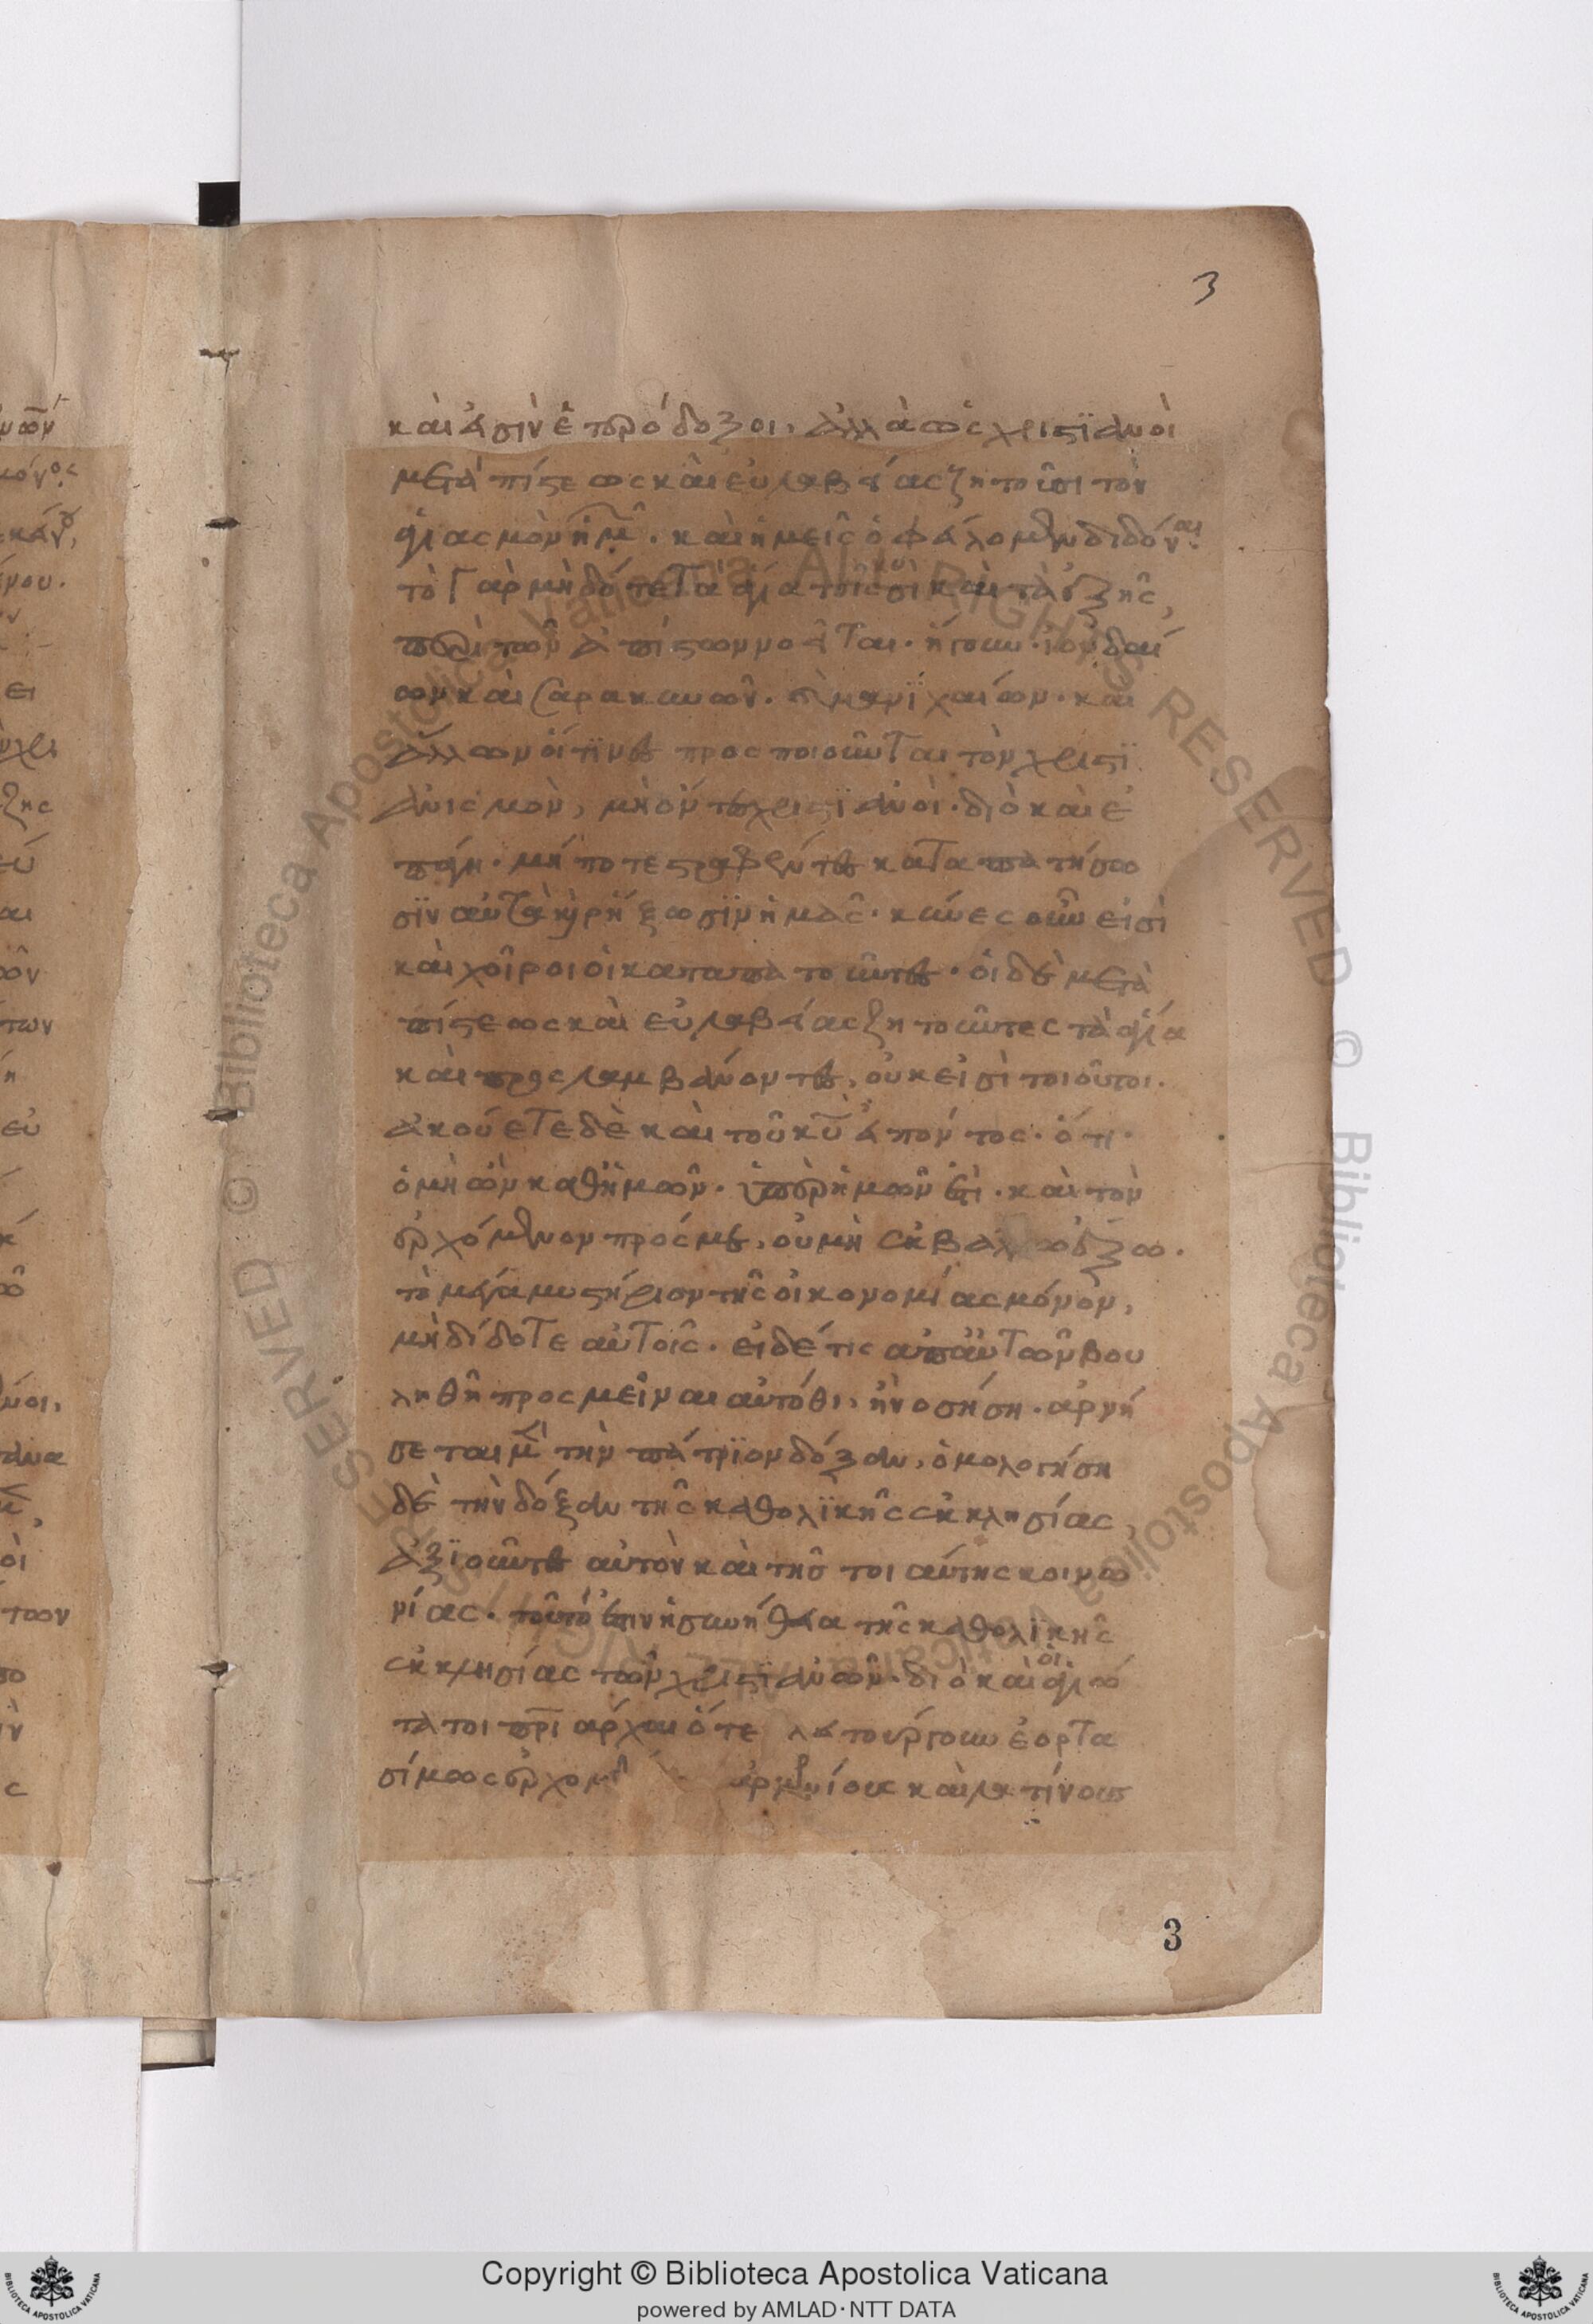 3
καὶ εἰσὶν ἑτερόδοξοι, ἀλλὰ ὡς χριστϊανοὶ
μετὰ πίστεως καὶ εὐλαβείας ζητοῦσι τὸν
ἁγιασμὸν ἡμ. καὶ ἡμεῖς ὀφείλομεν διδόναι.
τὸ γὰρ μὴ δότε τὰ ἅγια τοῖς κυσὶ καὶ τὰ ἑξῆς,
περὶ τῶν ἀπίστων νοεῖται. ἤγουν. ἰουδαί
ων καὶ σαρακηνῶν. μανϊχαίων. καὶ
ἄλλων οἵτϊνες προσποιοῦνται τὸν χριστϊ
ανισμὸν, μὴ ὄντες χριστϊανοὶ. διὸ καὶ ἐ
πάγει. μήποτε στραφέντες καταπατήσω
σϊν αὐτὰ καὶ ρήξωσϊν ἡμᾶς. κύνες οὖν εἰσὶ
καὶ χοῖροι οἱ καταπατοῦντες. οἱ δὲ μετὰ
πίστεως καὶ εὐλαβείας ζητοῦντες τὰ ἅγια
καὶ προσλαμβάνοντες, οὐκ εἰσὶ τοιοῦτοι.
ἀκούετε δὲ καὶ τοῦ κυ εἰπόντος. ὅτι.
ὁ μὴ ὢν καθ ἡμῶν. ὑπὲρ ἡμῶν ἐστὶ. καὶ τὸν
ἐρχόμενον πρός με, οὐ μὴ ἐκβάλω ἔξω.
τὸ μέγα μυστήριον τῆς οἰκονομίας μόνον,
μὴ δίδοτε αὐτοῖς. εἰ δέ τις ἀπ αὐτῶν βου
ληθῆ προσμεῖναι αὐτόθι, ἢ νοσήση. ἀρνή
σεται μὲν τὴν πάτρϊον δόξαν, ὁμολογήση
δὲ τὴν δόξαν τῆς καθολϊκῆς ἐκκλησίας,
ἀξϊοῦντες αὐτὸν καὶ τῆς τοιαύτης κοινω
νίας. τοῦτό ἐστιν ἡ συνήθεια τῆς καθολϊκῆς
ἐκκλησίας τῶν χριστϊανῶν. διὸ καὶ οἱ ἁγιώ
τατοι πρι άρχαι ὅτε λειτουργοῦν ἑορτα
σίμως ἐρχομ ἀρμενίους καὶ λατίνους
3
Copyright © Biblioteca Apostolica Vaticana
powered by AMLAD·NTT DATA